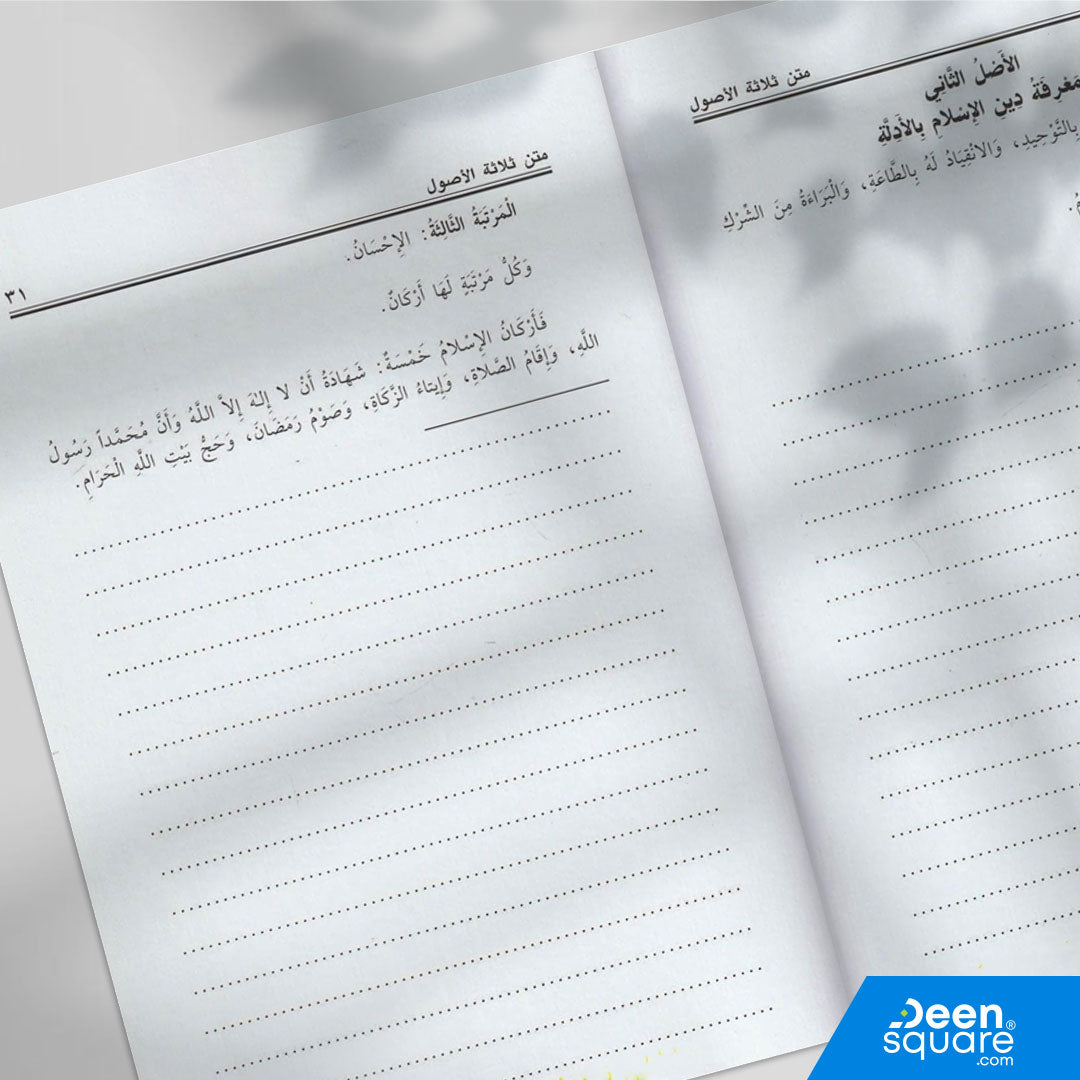 متن ثلاثة الأصول
الأَصْلُ الثَّانِي
مَعْرِفَةُ دِينِ الإِسْلامِ بِالأَدِلَّةِ
بِالتَّوْحِيدِ، وَالانْقِيَادُ لَهُ بِالطَّاعَةِ، وَالْبَرَاءَةُ مِنَ الشِّرْكِ
متن ثلاثة الأصول
٣١
الْمَرْتَبَةُ الثَّالِثَةُ: الإِحْسَانُ.
وَكُلُّ مَرْتَبَةٍ لَهَا أَرْكَانٌ.
فَأَرْكَانُ الإِسْلامُ خَمْسَةٌ: شَهَادَةُ أَنْ لا إِلهَ إِلاَّ اللَّهُ وَأَنَّ مُحَمَّداً رَسُولُ
اللَّهِ، وَإِقَامُ الصَّلاةِ، وَإِيتَاءُ الزَّكَاةِ، وَصَوْمُ رَمَضَانَ، وَحَجُّ بَيْتِ اللَّهِ الْحَرَامِ.
Deen®
square
.com